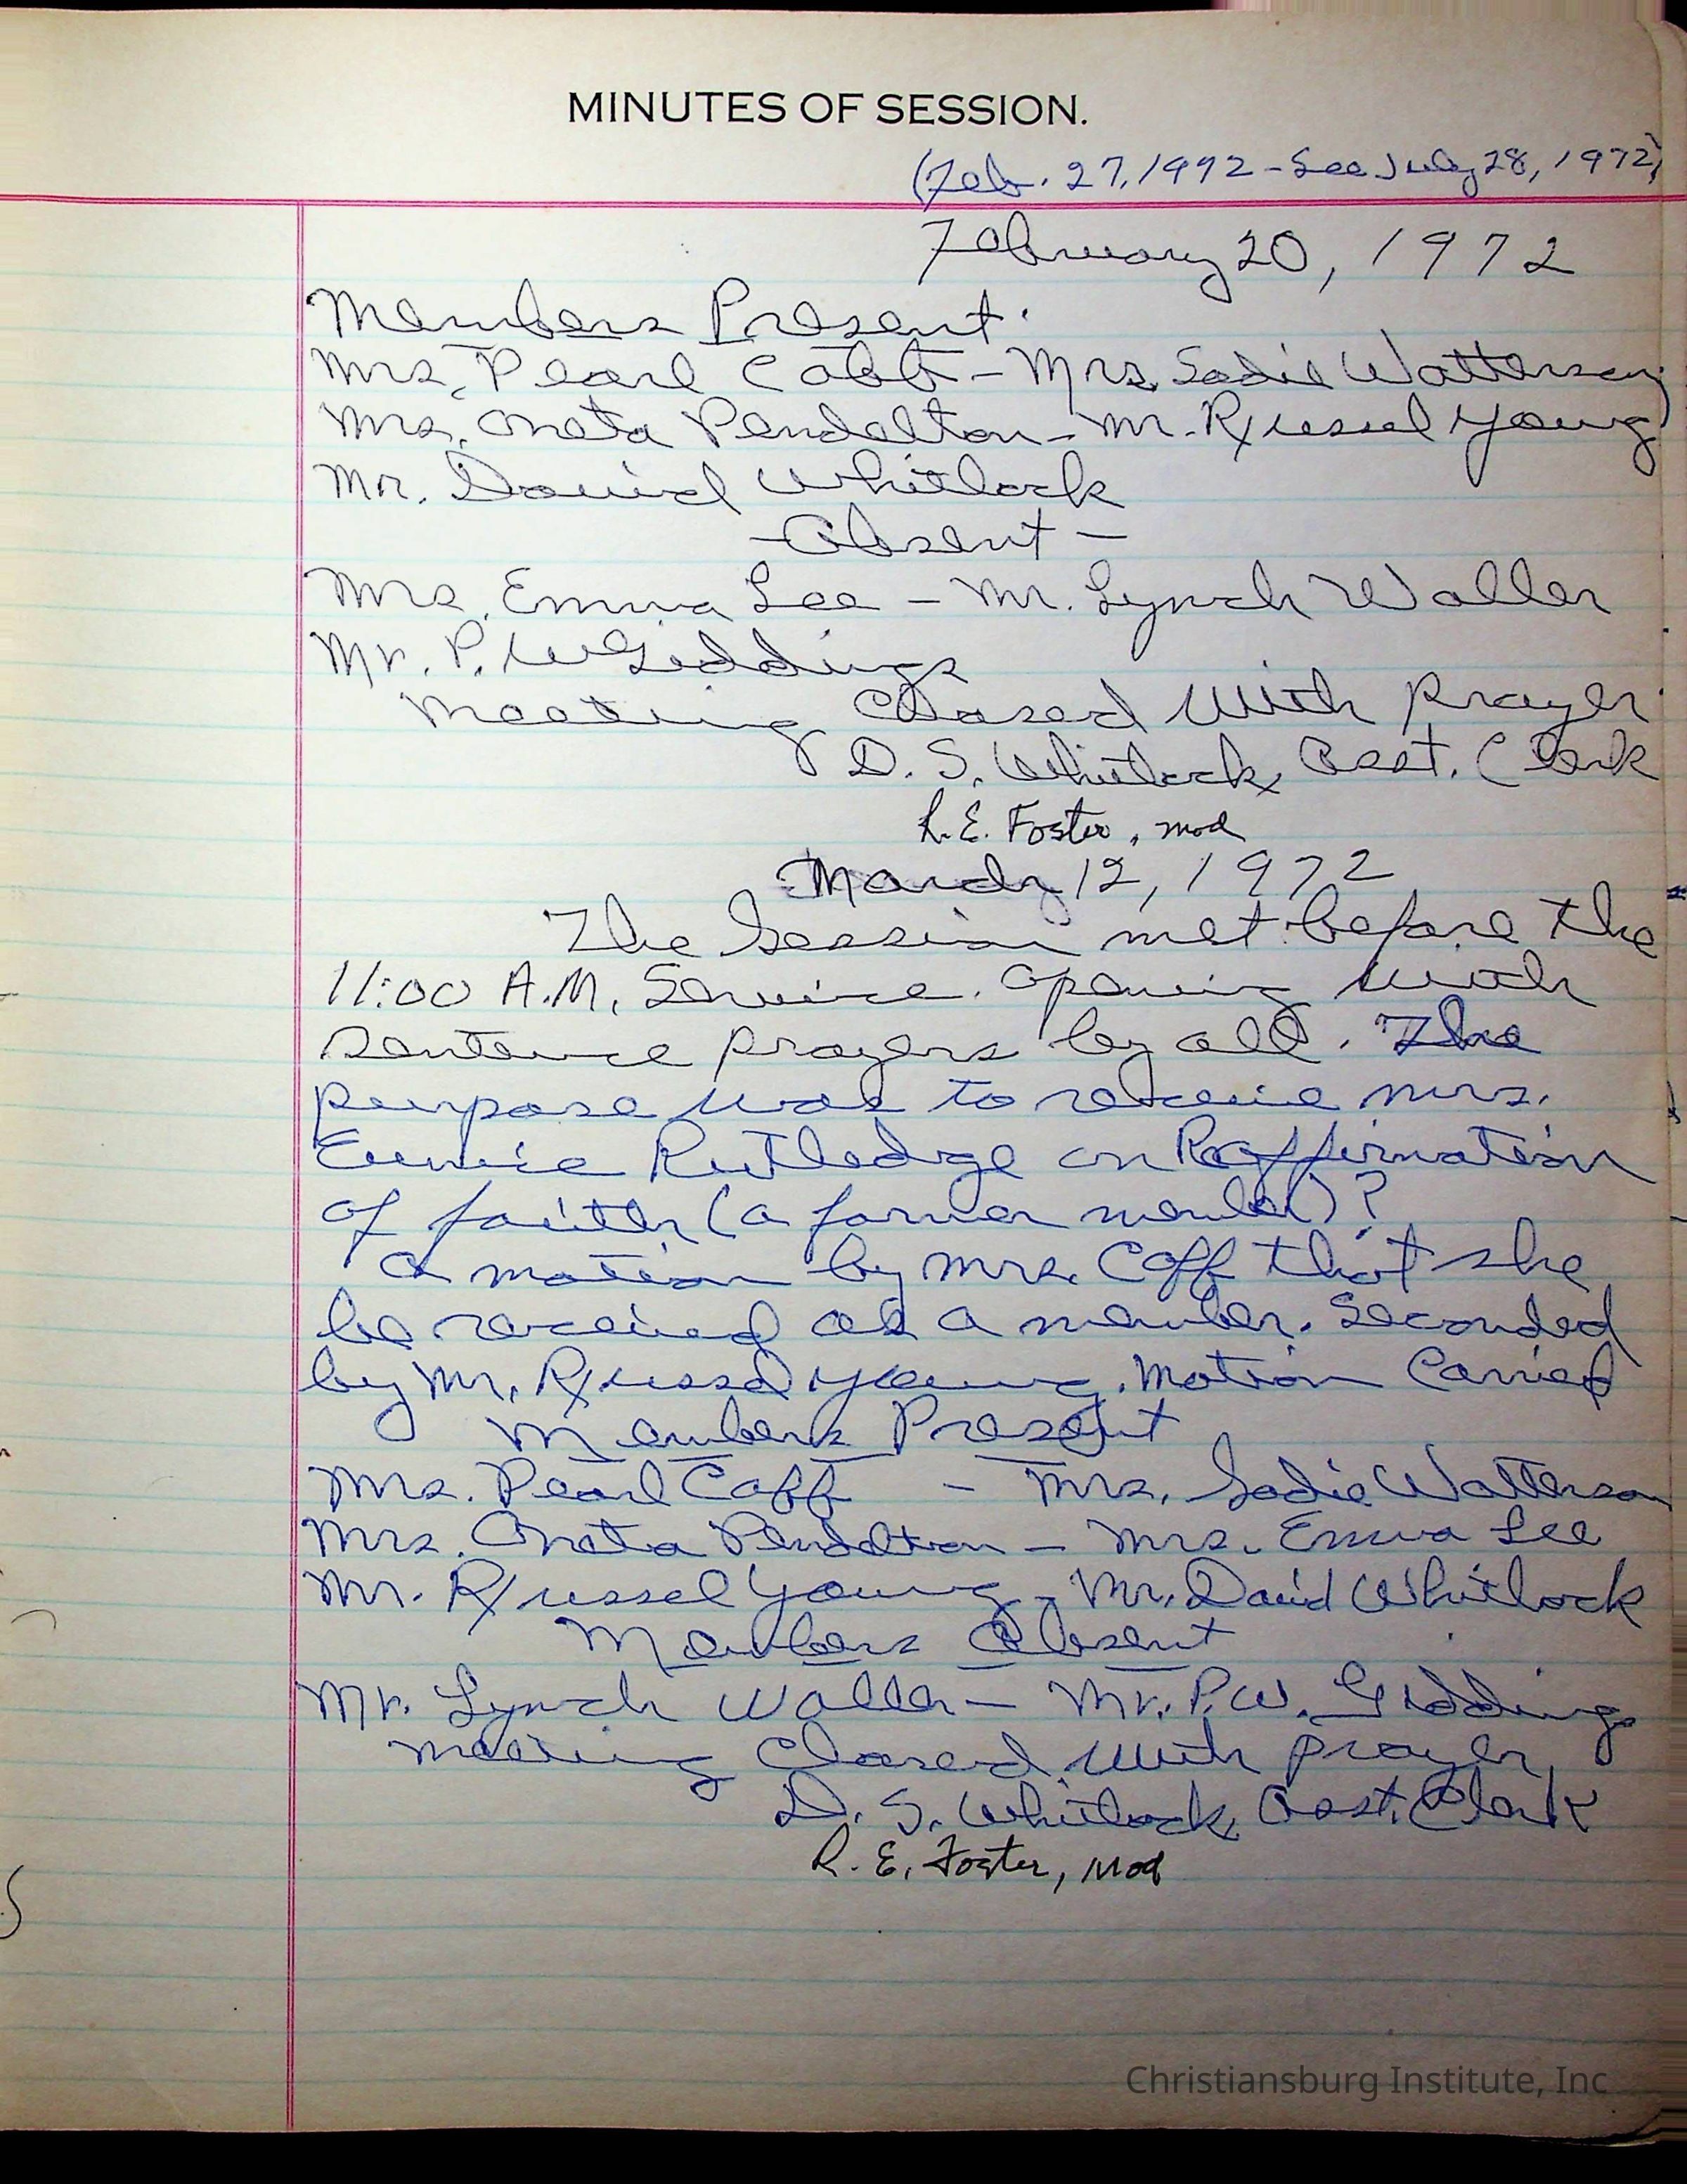 MINUTES OF SESSION.
(Feb. 27, 1972 - See July 28, 1972)
February 20, 1972
Members Present.
Mrs. Pearl Cobb - Mrs. Sadie Watterson
Mrs. Oneta Pendelton - Mr. Russel Young
Mr. David Whitlock
- Absent -
Mrs. Emma Lee - Mr. Lynch Waller
Mr. P. W Giddings
Meeting Closed with prayer
D. S. Whitlock, Asst. Clerk
R. E. Foster, Mod
March 12, 1972
The Session met before the
11:00 A.M. Service. Opening with
sentence prayers by all. The
purpose was to receive Mrs.
Eunice Rutledge on Reaffirmation
of faith (a former member)?
A motion by Mrs. Coff that she
be received as a member. Seconded
by Mr. Russel Young. Motion Carried
Members Present
Mrs. Pearl Coff - Mrs. Sadie Watterson
Mrs. Oneta Pendelton - Mrs. Emma Lee
Mr. Russel Young - Mr. David Whitlock
Members Absent
Mr. Lynch Waller - Mr. P. W. Giddings
Meeting Closed with prayer
D. S. Whitlock, Asst. Clerk
R. E. Foster, Mod
Christiansburg Institute, Inc